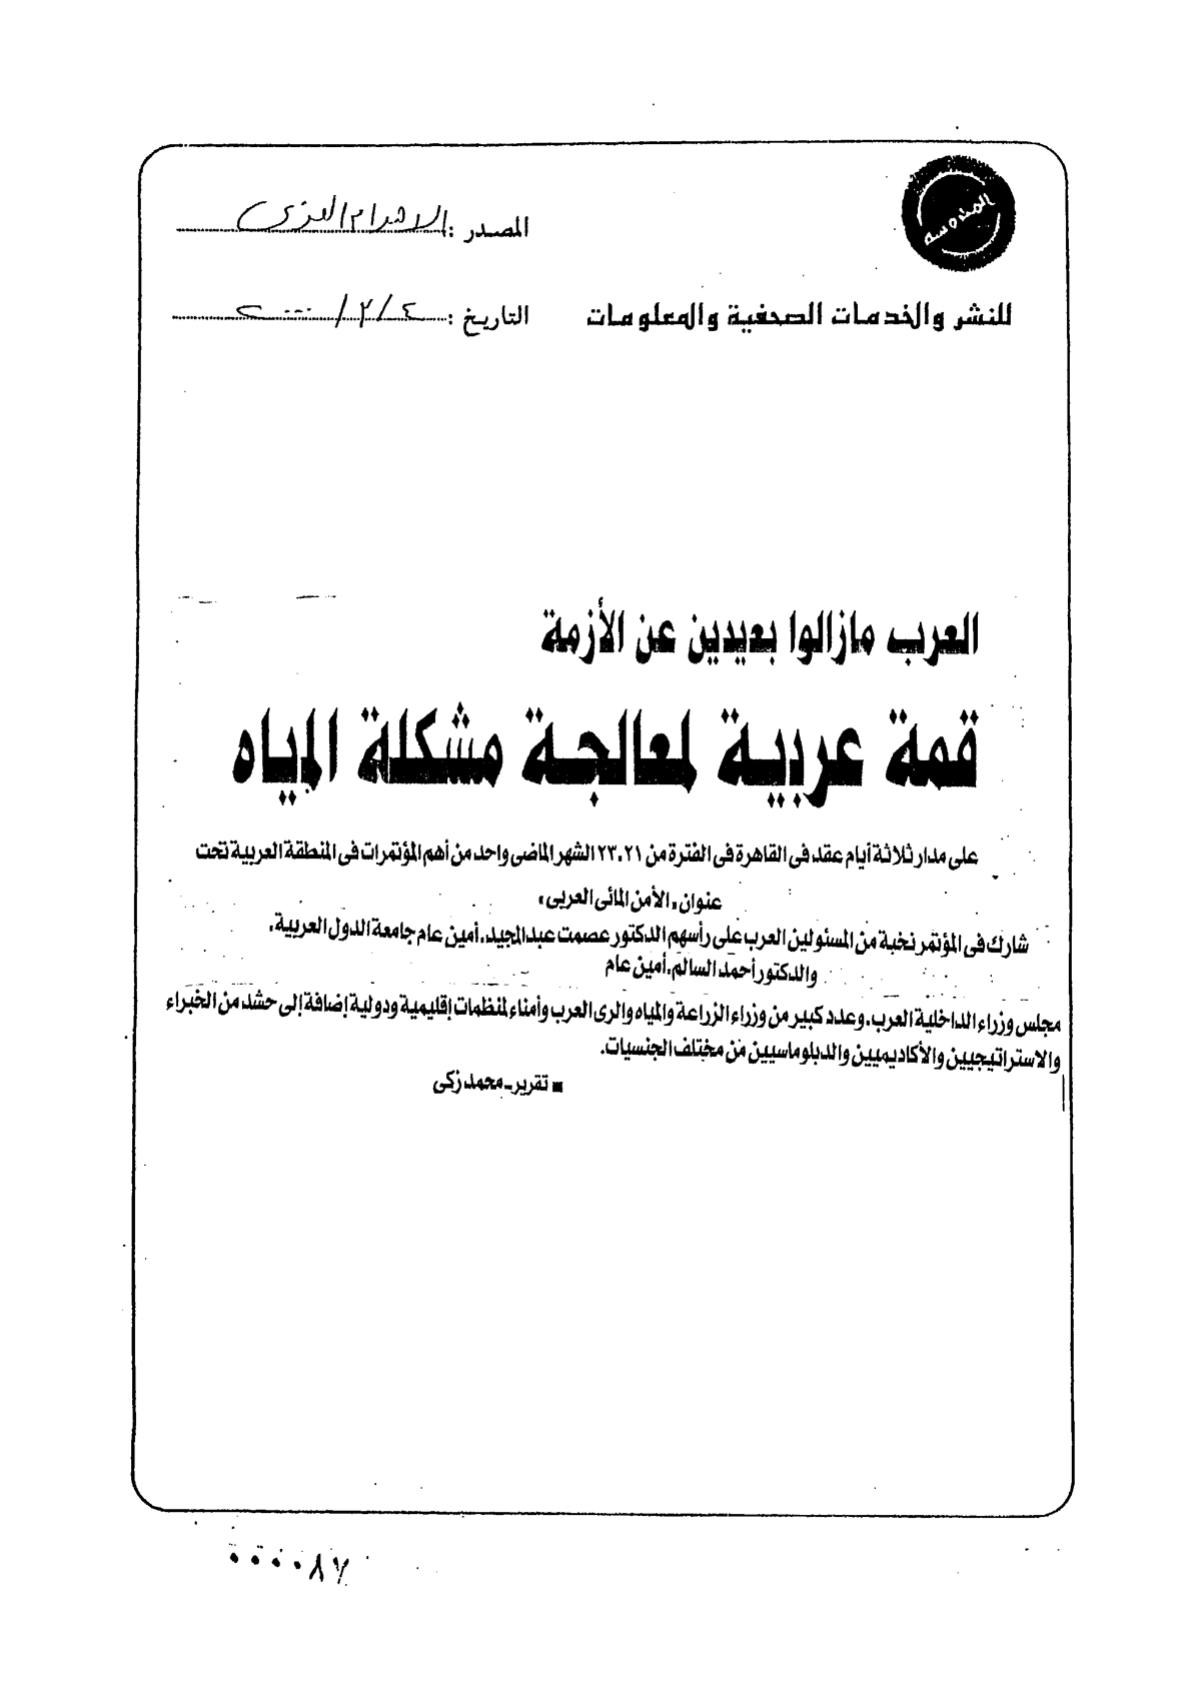 المصدر : الاهرام العربى
للنشر والخدمات الصحفية والمعلومات
التاريخ : ٤ / ٢ / ٢٠٠٠
العرب مازالوا بعيدين عن الأزمة
قمة عربية لمعالجة مشكلة المياه
على مدار ثلاثة أيام عقد فى القاهرة فى الفترة من ٢١ ـ ٢٣ الشهر الماضى واحد من أهم المؤتمرات فى المنطقة العربية تحت
عنوان «الأمن المائى العربى»
شارك فى المؤتمر نخبة من المسئولين العرب على رأسهم الدكتور عصمت عبدالمجيد، أمين عام جامعة الدول العربية،
والدكتور أحمد السالم، أمين عام
مجلس وزراء الداخلية العرب، وعدد كبير من وزراء الزراعة والمياه والرى العرب وأمناء لمنظمات إقليمية ودولية إضافة إلى حشد من الخبراء
والاستراتيجيين والأكاديميين والدبلوماسيين من مختلف الجنسيات.
■ تقرير ـ محمد زكى
٠٠٠٠٨٧